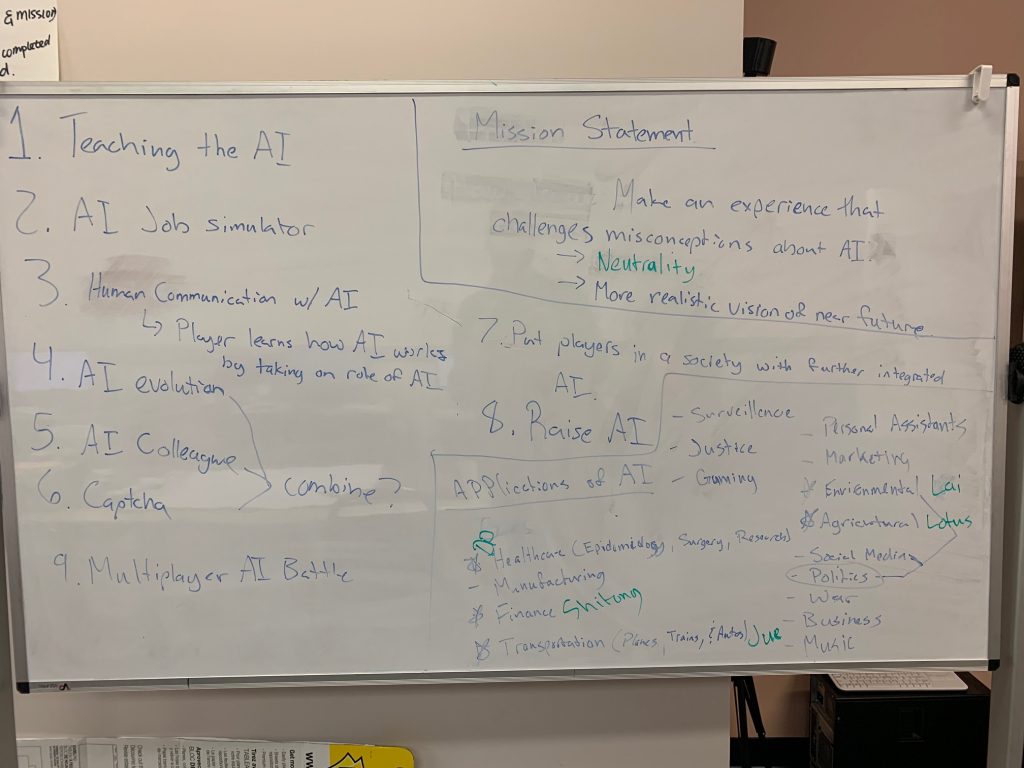 & mission
completed
d.
1. Teaching the AI
2. AI Job simulator
3. Human Communication w/ AI
↳ Player learns how AI works
by taking on role of AI
4. AI evolution
5. AI Colleague
6. Captcha
combine?
9. Multiplayer AI Battle
Mission Statement
Make an experience that
challenges misconceptions about AI.
→ Neutrality
→ More realistic vision of near future
7. Put players in a society with further integrated
AI.
8. Raise AI
Applications of AI
- Surveillence
- Justice
- Gaming
* Healthcare (Epidemiology, Surgery, Research)
- Manufacturing
* Finance Shitong
* Transportation (Planes, Trains, & Autos) Jue
- Personal Assistants
- Marketing
* Envirenmental Lai
* Agricultural Lotus
- Social Media
- Politics
- War
- Business
- Music